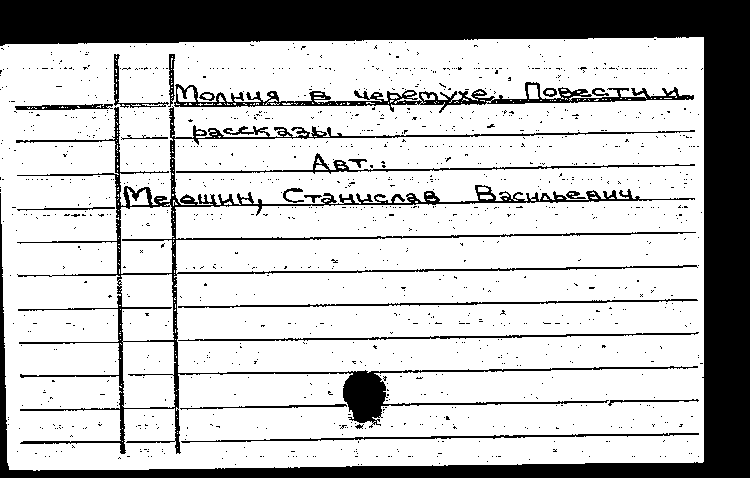 Молния в черемухе. Повести и
рассказы.
Авт.:
Мелешин, Станислав Васильевич.